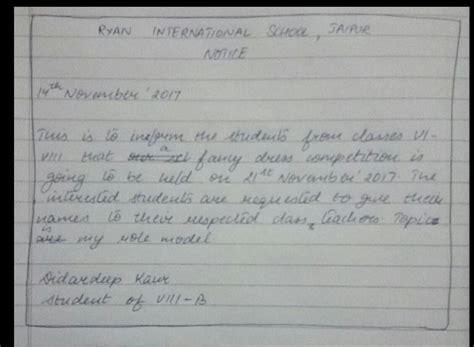 RYAN INTERNATIONAL SCHOOL, JAIPUR
NOTICE
14th November' 2017
This is to inform the students from classes VI-
VIII that a fancy dress competition is
going to be held on 21st November' 2017. The
interested students are requested to give their
names to their respected class teachers. Topic
is my role model.
Didardeep Kaur
Student of VIII-B